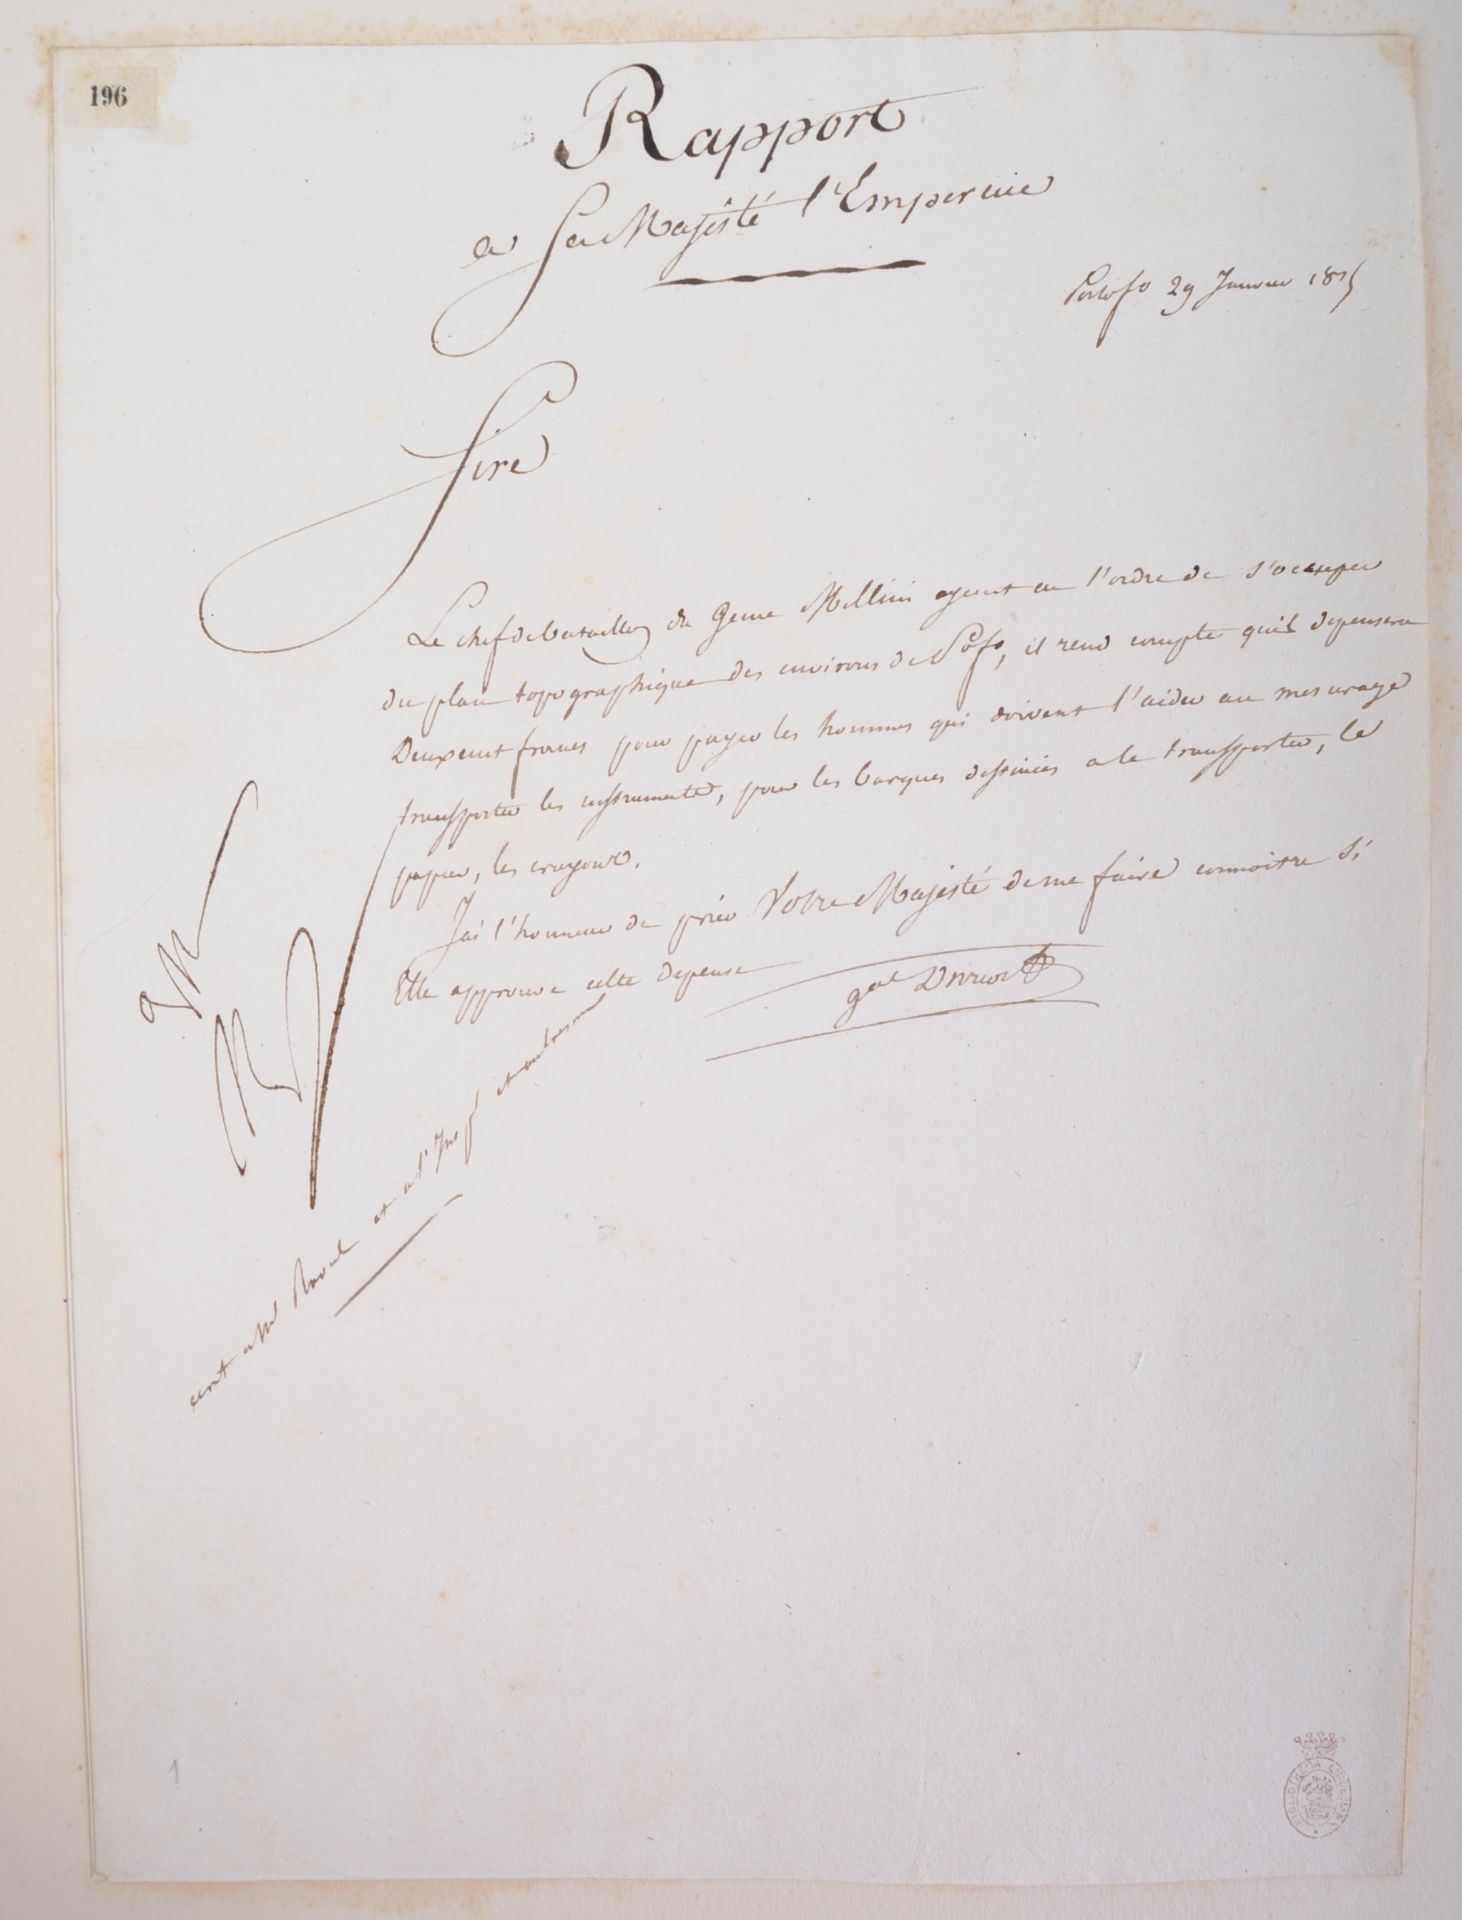 196
Rapport
a Sa Majesté l'Empereur
Portofo 29 Janvier 1815
Sire
Le chef de bataillon du Genie Mellini ayant eu l'ordre de s'occuper
du plan topographique des environs de Pofo, il rend compte qu'il depensera
Deux cent francs pour payer les hommes qui doivent l'aider au mesurage
transporter les instruments, pour les barques destinées a le transporter, le
papier, les crayons.
J'ai l'honneur de prier Votre Majesté de me faire connoitre si
Elle approuve cette depense
gal Drouot